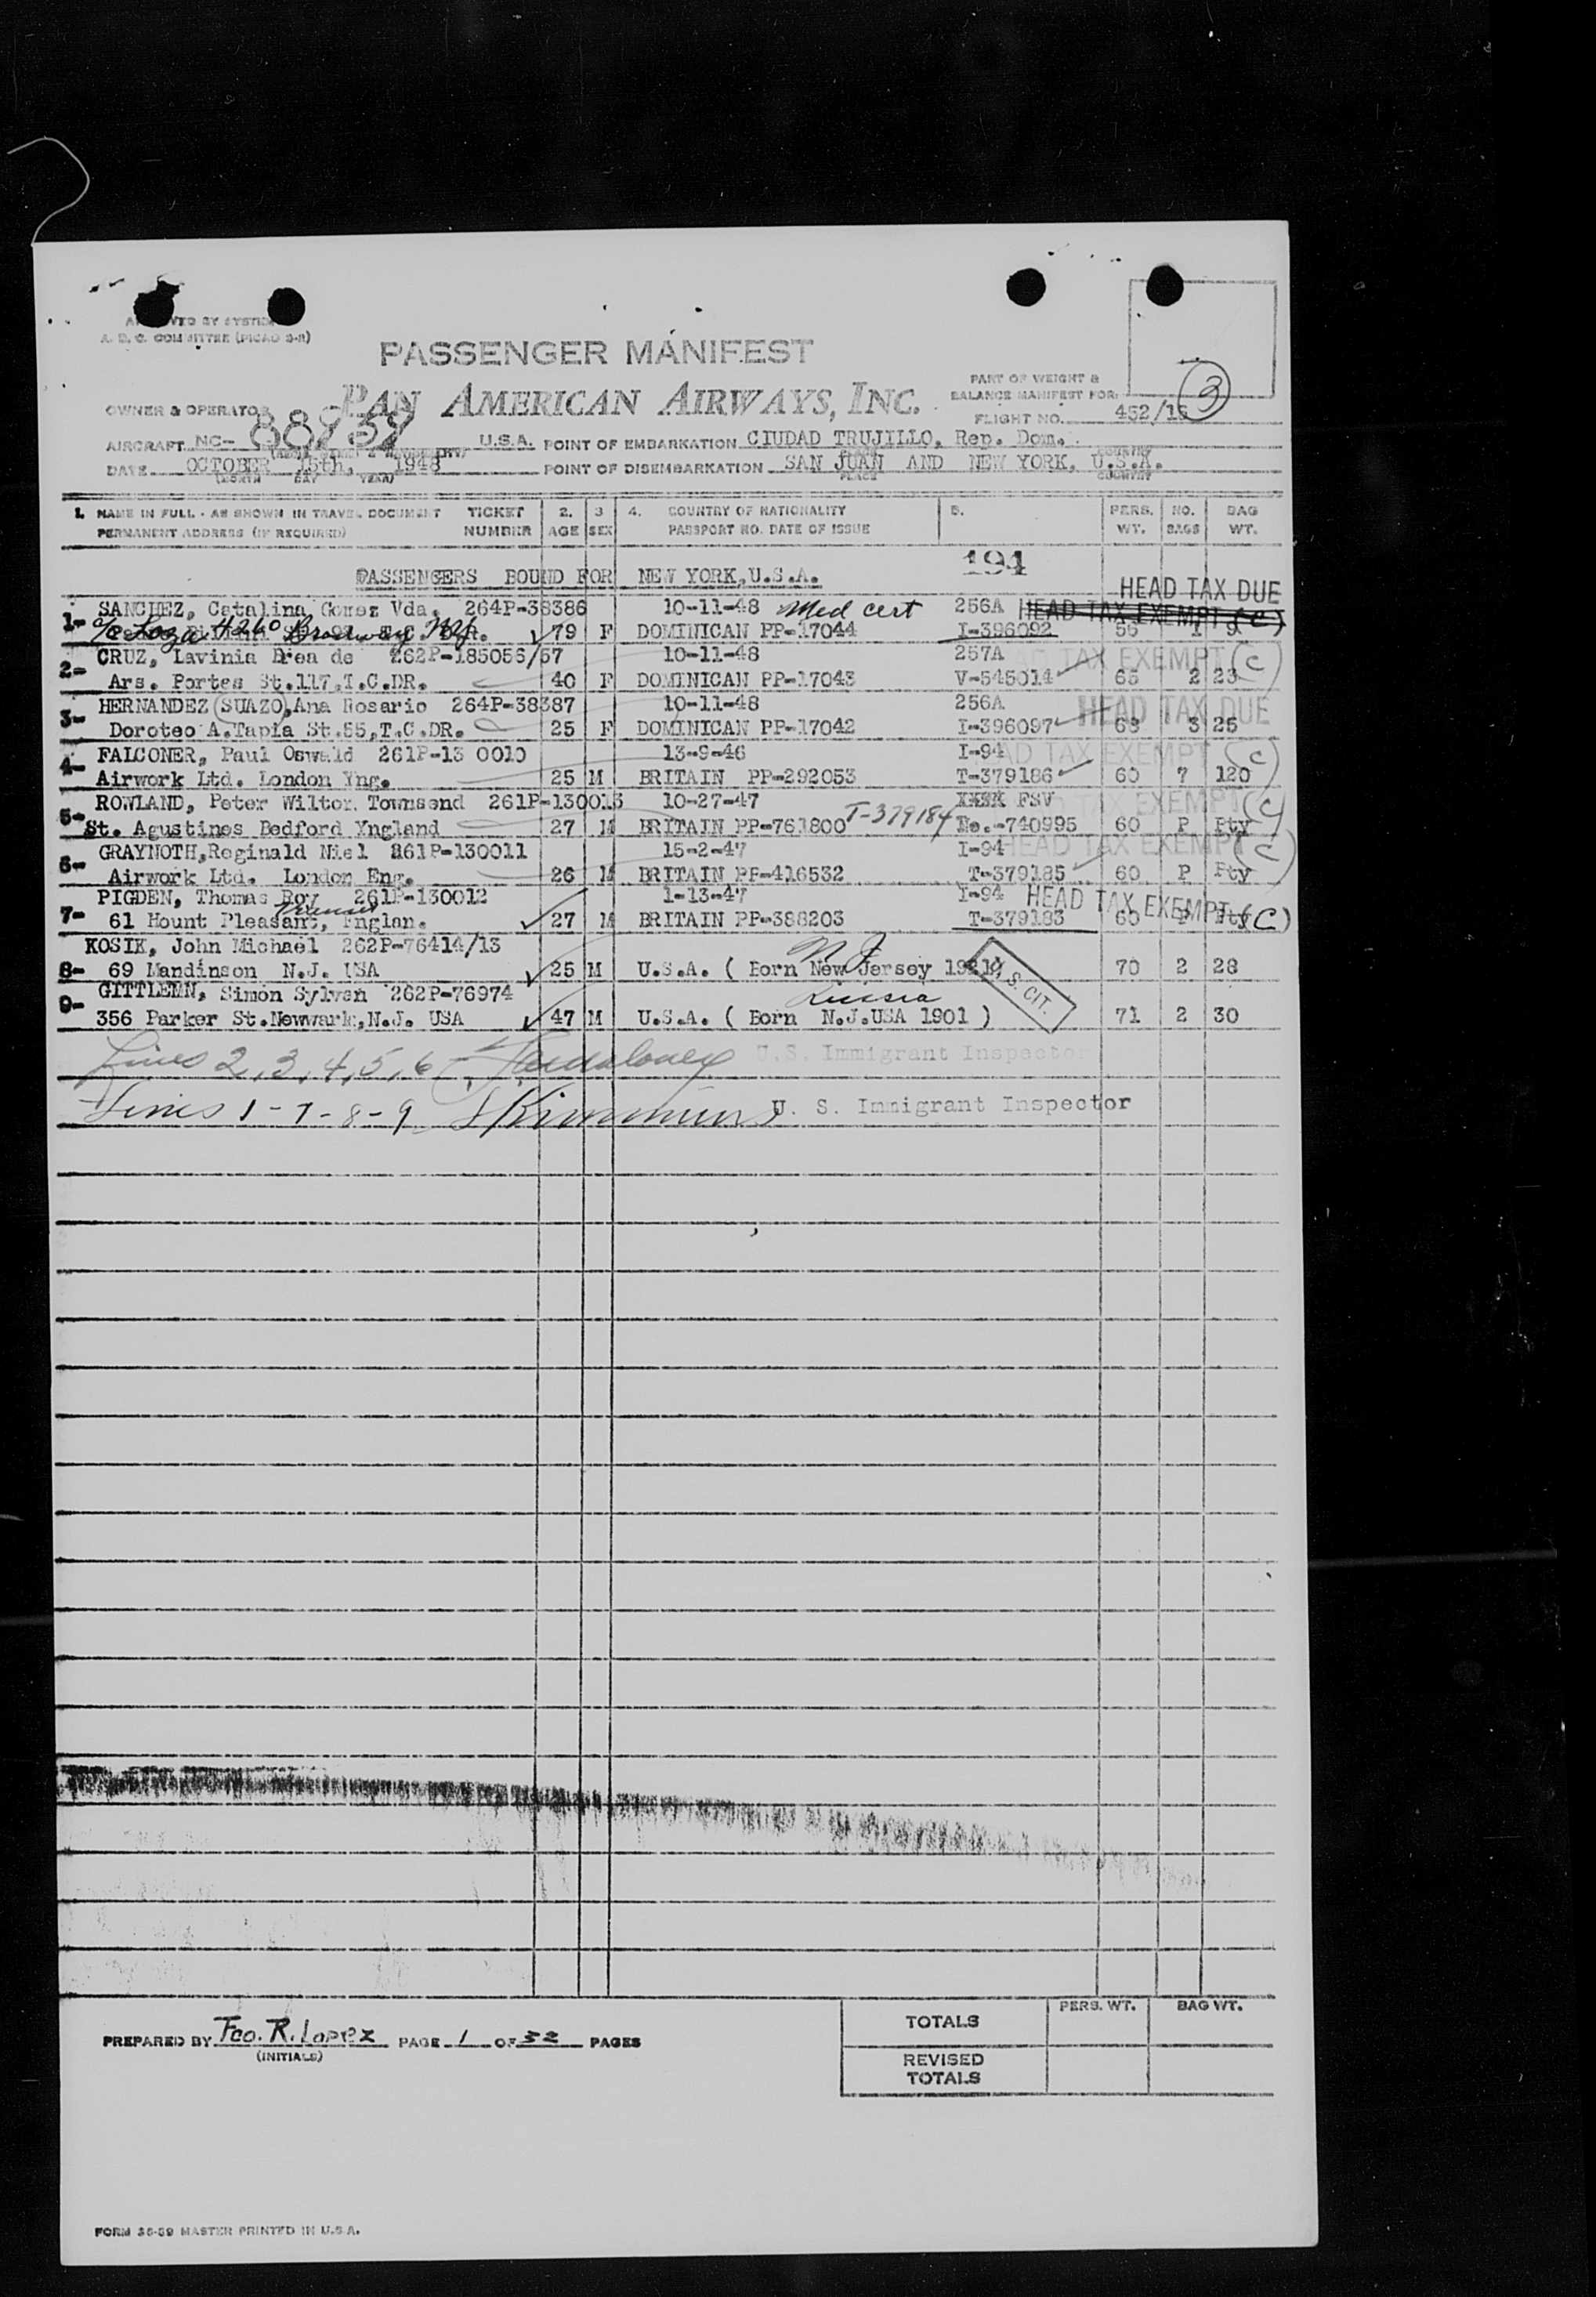 COMMITTEE (PICAO S-11)
PASSENGER MANIFEST
PAN AMERICAN AIRWAYS, INC.
PART OF WEIGHT &
BALANCE MANIFEST FOR:
3
OWNER & OPERATOR
FLIGHT NO. 452/15
AIRCRAFT NC- U.S.A. POINT OF EMBARKATION CIUDAD TRUJILLO, Rep. Dom.
DATE OCTOBER 15th, 1948 POINT OF DISEMBARKATION SAN JUAN AND NEW YORK, U.S.A.
(MONTH DAY YEAR) PLACE COUNTRY
1. NAME IN FULL - AS SHOWN IN TRAVEL DOCUMENT TICKET 2. 3 4. COUNTRY OF NATIONALITY 5. PERS. NO. BAG
PERMANENT ADDRESS (IF REQUIRED) NUMBER AGE SEX PASSPORT NO. DATE OF ISSUE WT. BAGS WT.
194
PASSENGERS BOUND FOR NEW YORK, U.S.A.
HEAD TAX DUE
SANCHEZ, Catalina Gomez Vda. 264P-38386 10-11-48 Med cert 256A HEAD TAX EXEMPT (C)
1- c/o Loza 4260 Broadway NY. 79 F DOMINICAN PP-17044 I-396092 56 1 9
CRUZ, Lavinia Brea de 262P-185056/57 10-11-48 257A TAX EXEMPT (C)
2- Ars. Portes St.117,T.C.DR. 40 F DOMINICAN PP-17043 V-545014 65 2 23
HERNANDEZ (SUAZO),Ana Rosario 264P-38387 10-11-48 256A HEAD TAX DUE
3- Doroteo A.Tapia St.55,T.C.DR. 25 F DOMINICAN PP-17042 I-396097 68 3 25
FALCONER, Paul Oswald 261P-13 0010 13-9-46 I-94 HEAD TAX EXEMPT (C)
4- Airwork Ltd. London Yng. 25 M BRITAIN PP-292053 T-379186 60 7 120
ROWLAND, Peter Wilton Townsend 261P-130013 10-27-47 XXXX FSV TAX EXEMPT (C)
5- St. Agustines Bedford Yngland 27 M BRITAIN PP-761800 T-379184 No.-740995 60 P Pty
GRAYNOTH,Reginald Niel 261P-130011 15-2-47 I-94 HEAD TAX EXEMPT (C)
6- Airwork Ltd. London Eng. 26 M BRITAIN PP-416532 T-379185 60 P Pty
PIGDEN, Thomas Roy 261P-130012 1-13-47 I-94 HEAD TAX EXEMPT (C)
7- 61 Mount Pleasant, Englan. 27 M BRITAIN PP-388203 T-379183 60 P Pty
KOSIK, John Michael 262P-76414/13 N J
8- 69 Mandinson N.J. USA 25 M U.S.A. ( Born New Jersey U. S. CIT. 70 2 28
GITTLEMN, Simon Sylven 262P-76974 Russia
9- 356 Parker St.Newwark,N.J. USA 47 M U.S.A. ( Born N.J.USA 1901 ) 71 2 30
Lines 2,3,4,5,6 U.S. Immigrant Inspector
Lines 1-7-8-9 U. S. Immigrant Inspector
PERS. WT. BAG WT.
TOTALS
PREPARED BY Fco. R. Lopez PAGE 1 OF PAGES
(INITIALS)
REVISED
TOTALS
FORM 36-59 MASTER PRINTED IN U.S.A.